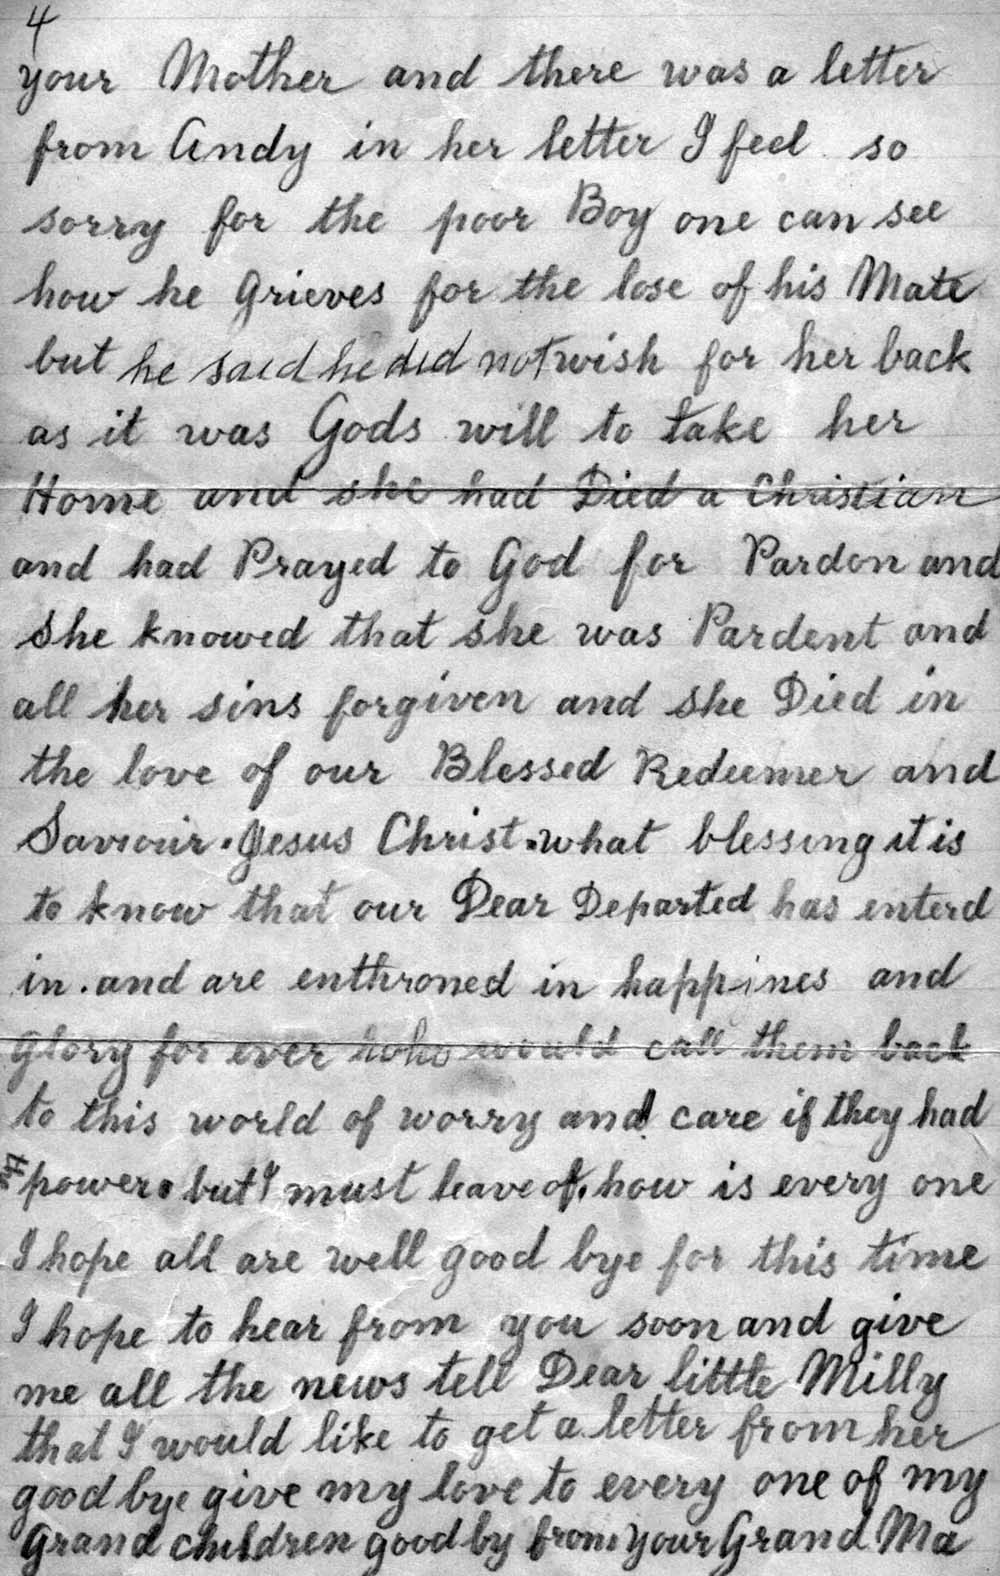 4
your Mother and there was a letter
from Andy in her letter I feel so
sorry for the poor Boy one can see
how he grieves for the lose of his Mate
but he said he did not wish for her back
as it was Gods will to take her
Home and she had Died a Christian
and had Prayed to God for Pardon and
she knowed that she was Pardent and
all her sins forgiven and she Died in
the love of our Blessed Redeemer and
Saviour. Jesus Christ. what blessing it is
to know that our Dear Departed has enterd
in. and are enthroned in happines and
glory for ever who would call them back
to this world of worry and care if they had
the power. but I must leave of. how is every one
I hope all are well good bye for this time
I hope to hear from you soon and give
me all the news tell Dear little Milly
that I would like to get a letter from her
good bye give my love to every one of my
Grand children good by from your Grand Ma